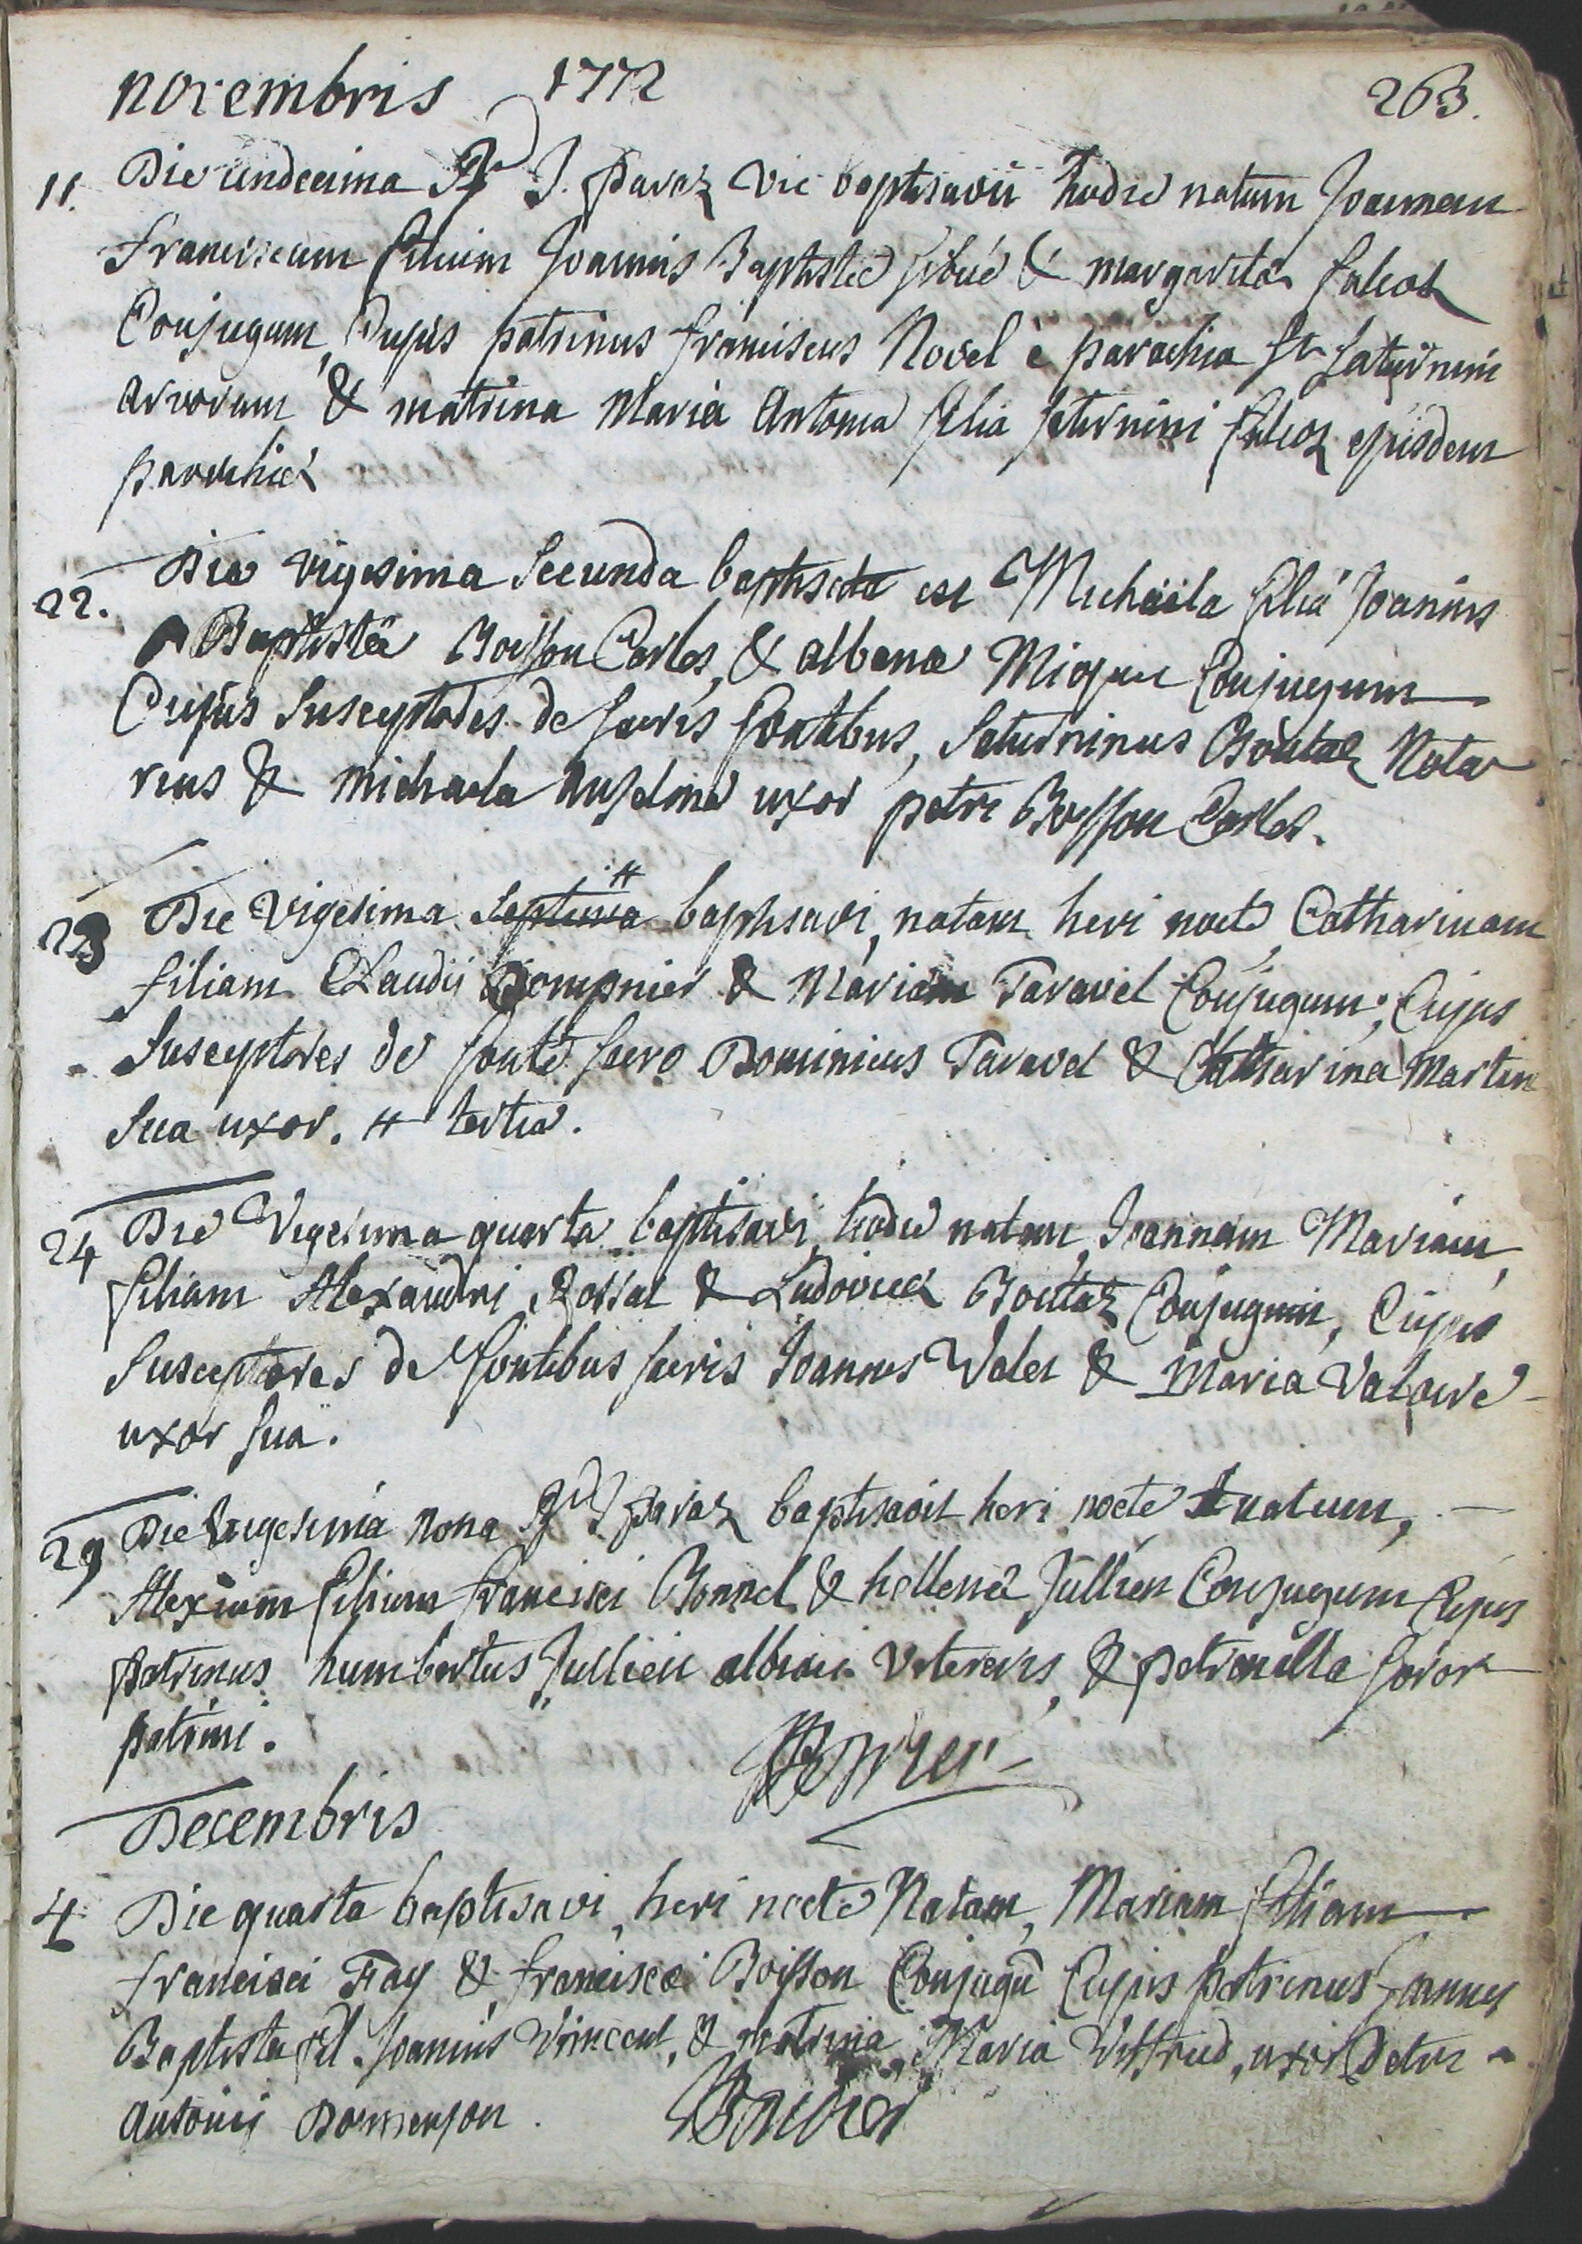 novembris 1772 263.
11. Die undecima Rd J. pavaz vic baptisavit hodie natum Joannem
franciscum filium Joannis Baptistæ & margaritæ falcoz
Conjugum, Cujus patrinus franciscus Novel è parochia sti Saturnini
arvorum & matrina Maria Antonia filia saturnini falcoz ejusdem
parochiæ
22. Die vigesima Secunda baptisata est Michaela filia Joannis
Baptistæ Boisson Carlos, & albanæ Conjugum
Cujus Susceptores de sacris fontibus, Saturninus Boutaz Nota
rius & michaela anselme uxor petri Boisson Carlos.
23 Die Vigesima septima # baptisavi, natam heri nocte, Catharinam
filiam Claudii Dompnier & Mariæ Taravel Conjugum; Cujus
Susceptores de fonte sacro Dominicus Taravel & Catharina Martin
sua uxor. # tertia.
24 Die Vigesima quarta baptisavi, hodie natam, Joannam Mariam,
filiam Alexandri Rossat & Ludovicæ Boutaz Conjugum, Cujus
Susceptores de fontibus sacris Joannes Valet & Maria Valoire
uxor sua.
29 Die vigesima nona Rd J pavaz baptisavit heri nocte natum,
Alexium filium francisci Bonnel & hellenæ Jullien Conjugum Cujus
patrinus humbertus Jullien albiaci veteris, & petronilla soror
patrini.
Decembris
4 Die quarta baptisavi, heri nocte Natam, Mariam filiam
francisci Fay & franciscæ Boisson Conjugū Cujus patrinus Joannes
Baptista fil. Joannis Vincent, & matrina Maria uxor Petri
antonii Domenjon.